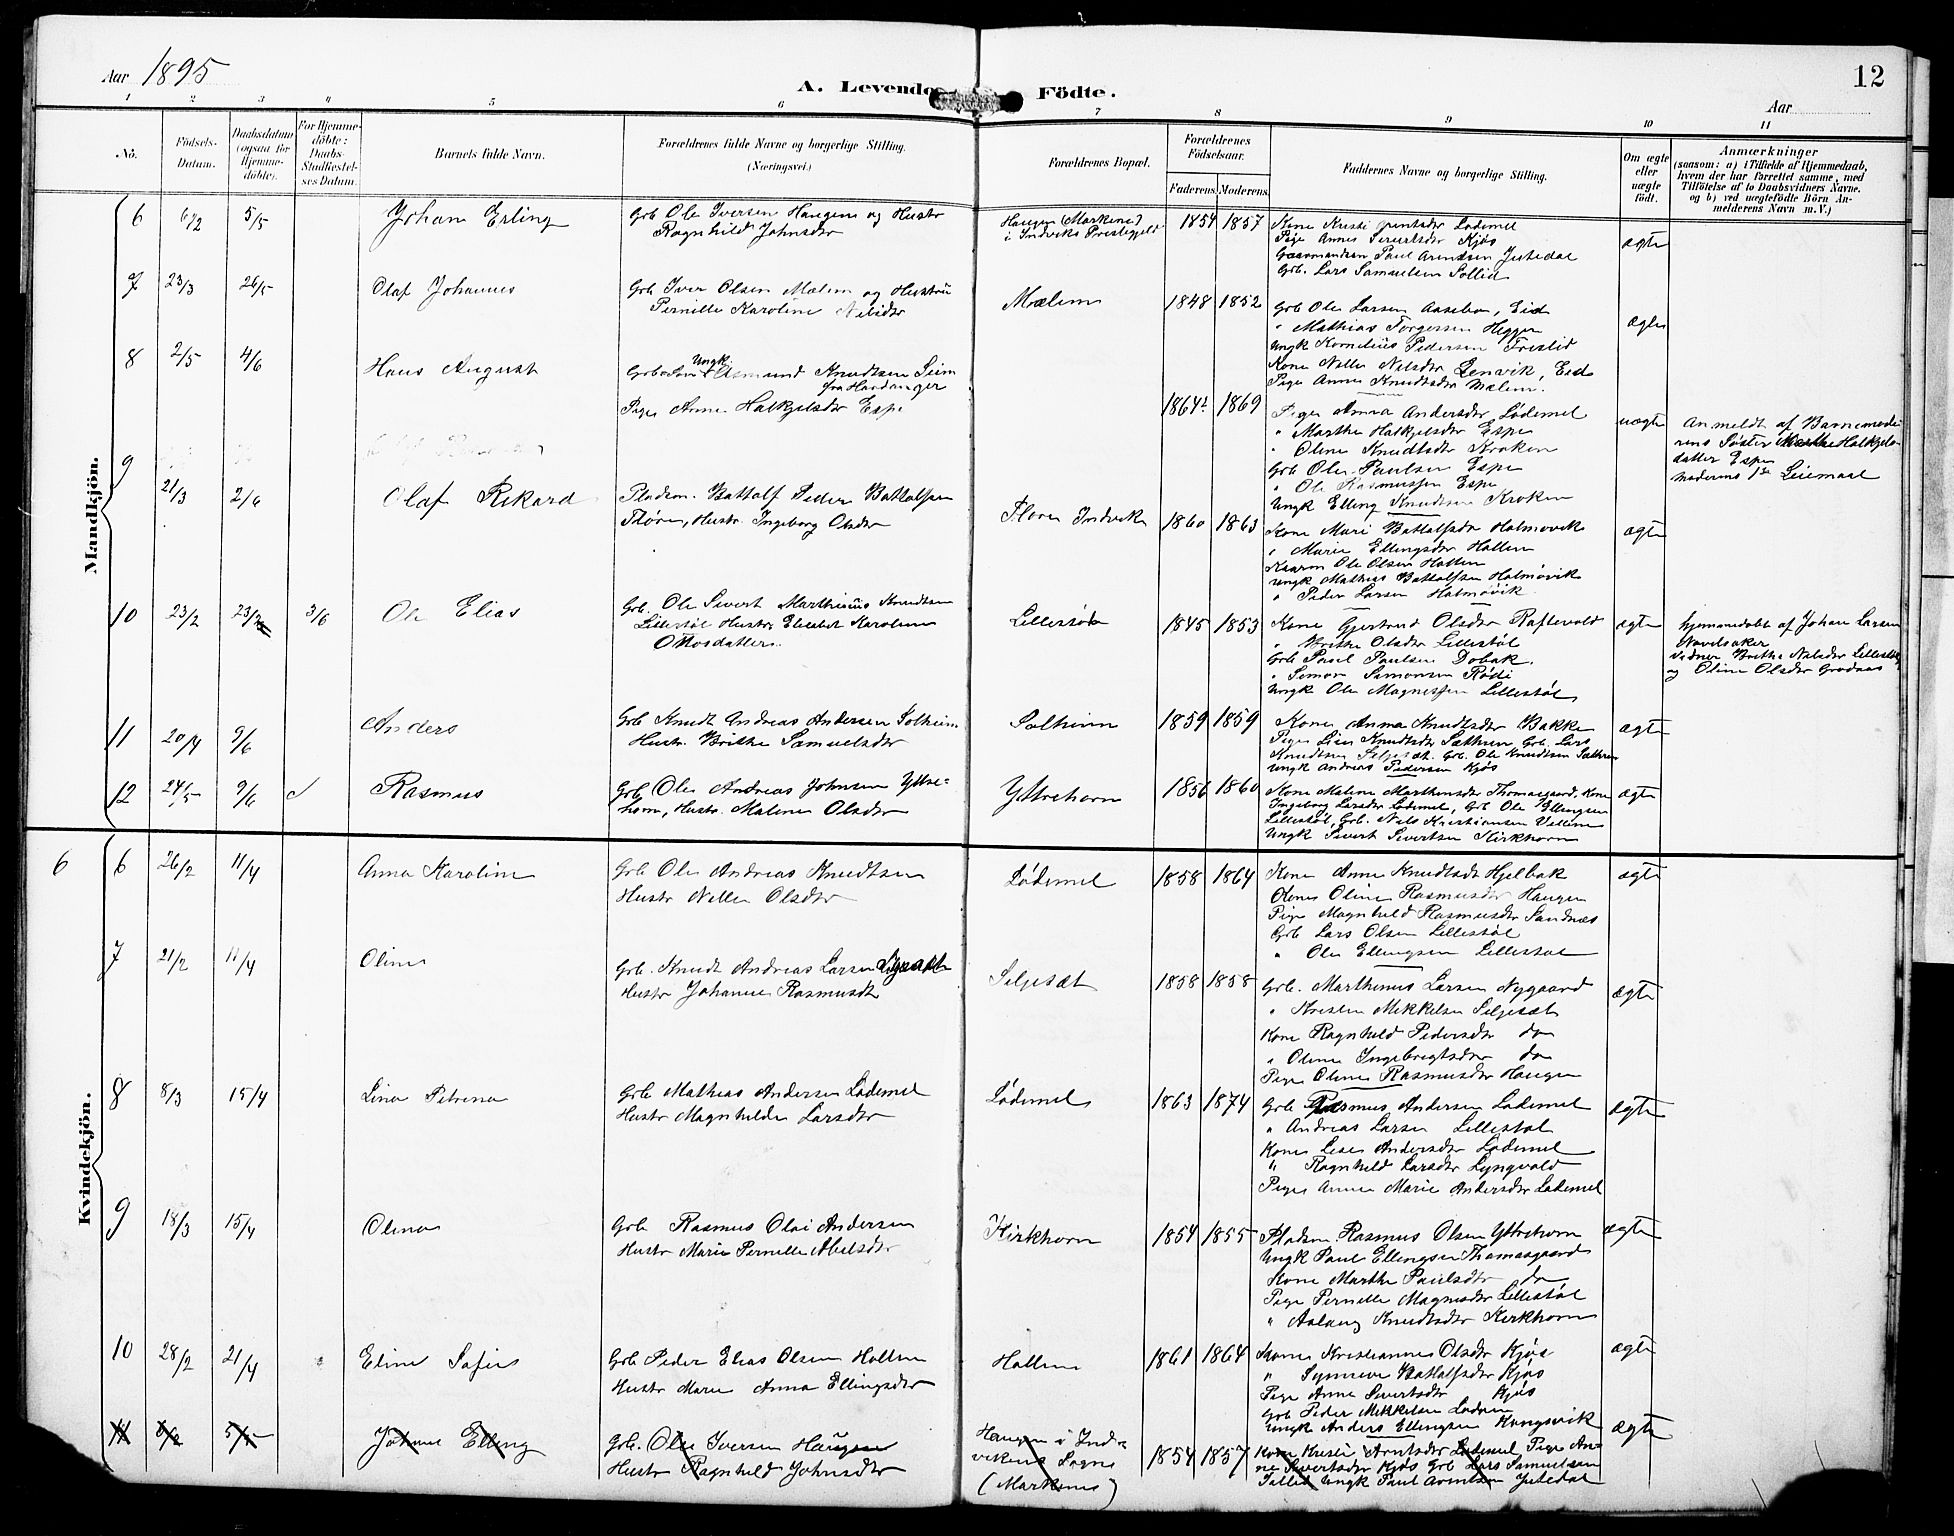 Aar 1895
A. Levende Födte.
12
Aar
1 2 3 4 5 6 7 8 9 10 11
No.
Födsels-Datum.
Daabsdatum (ogsaa for Hjemme-döbte).
For Hjemme-döbte: Daabs-Stadfæstel-ses Datum.
Barnets fulde Navn.
Forældrenes fulde Navne og borgerlige Stilling. (Næringsvei.)
Forældrenes Bopæl.
Forældrenes Födselsaar.
Faderens. Moderens.
Faddernes Navne og borgerlige Stilling.
Om ægte eller uægte födt.
Anmærkninger
(saasom: a) i Tilfælde af Hjemmedaab, hvem der har forrettet samme, med Tilföielse af to Daabsvidners Navne. og b) ved uægtefödte Börn An-melderens Navn m. V.)
Mandkjön.
6 6/2 5/5 Johan Erling
Grb Ole Iversen Haugen og Hustr
Ragnhild Johnsdtr
Haugen (Markene)
i Indviks Prestegjeld
1854 1857
Kone Kristi Arntsdtr Lødemel
Pige Anne Sivertsdtr Kjøs
Gaardmandssøn Paul Arentsen Jutedal
Grb. Lars Samuelsen Sollid
ægte
7 23/3 26/5 Olaf Johannes
Grb Iver Olsen Mælem og Hustru
Pernille Karoline Nilsdtr
Mælem
1848 1852
Grb Ole Larsen Aasebø, Eid
" Mathias Torgersen Heggen
Ungk Kornelius Pedersen Frislid
Kone Nille Nilsdtr Lenvik, Eid
Pige Anne Knudtsdtr Mælem.
ægte
8 2/5 4/6 Hans August
Ungk.
Asmund Knudtsen Seim
fra Hardanger
Pige Anne Halkjelsdtr Espe
1864? 1869
Pige Anna Andersdtr Lødemel
" Marthe Halkjelsdtr Espe
" Oline Knudtsdtr Kroken
Grb Ole Paulsen Espe
" Ole Rasmussen Espe
Ungk Elling Knudtsen Kroken
uægte
Anmeldt af Barnemode-
rens Søster Marthe Halkjels-
datter Espe
Moderens 1ste Leiemaal
9 21/3 2/6 Olaf Rikard
Pladsm. Battolf Peder Battolfsen
Floren, Hustr. Ingeborg Olsdtr
Floren Indvik
1860 1863
Kone Mari Battolfsdtr Holmøvik
" Marie Ellingsdtr Hollen
Ole Olsen Hollen
Ungk Mathias Battolfsen Holmøvik
" Peder Larsen Holmøvik.
ægte
10 23/2 23/2 3/6 Ole Elias
Grb. Ole Sivert Marthinus Knudtsen
Lillestøl Hustr. Elisabet Karoline
Ottosdatter.
Lillestøl
1845 1853
Kone Gjertrud Olsdtr Raftevold
" Brithe Olsdtr Lillestøl
Grb Poul Paulsen Dobak.
" Simon Simonsen Rødi
Ungk Ole Magnessen Lillestøl
ægte
hjemmedøbt af Johan Larsen
Navelsaker
Vidner Brithe Nilsdtr Lillestøl
og Oline Olsdtr Grodaas
11 20/4 9/6 Anders
Grb Knudt Andreas Andersen Solheim
Hustr. Brithe Samuelsdtr
Solheim
1859 1859
Kone Anna Knudtsdtr Bakke
Pige Lise Knudtsdtr Sætren Grb. Lars
Knudtsen Seljesæt. Grb. Ole Knudtsen Sætren
Ungk Andreas Pedersen Kjøs
ægte
12 24/5 9/6 Rasmus
Grb Ole Andreas Johnsen Yttre-
horn, Hustr. Maline Olsdtr
Yttrehorn
1856 1860
Kone Maline Marthinsdtr Thomasgaard, Kone
Ingeborg Larsdtr Lødemel, Grb Ole Ellingsen
Lillestøl, Grb. Nils Kristiansen Vellene
Ungk Sivert Sivertsen Kirkhorn
ægte
Kvindekjön.
6
6 26/2 11/4 Anna Karoline
Grb Ole Andreas Knudtsen
Hustr Nille Olsdtr
Lødemel
1858 1864
Kone Anne Knudtsdt Hjelbak
Kone Oline Rasmusdtr Haugen
Pige Magnhild Rasmusdtr Sandnæs
Grb Lars Olsen Lillestøl
" Ole Ellingsen Lillestøl
ægte
7 21/2 11/4 Oline
Grb. Knudt Andreas Larsen
Hustr Johanne Rasmusdt
Seljesæt
1858 1858
Grb. Marthinus Larsen Nygaard
" Kristen Mikkelsen Seljesæt
Kone Ragnhild Pedersdtr do
" Oline Ingebrigtsdtr do
Pige Oline Rasmusdtr Haugen
ægte
8 8/3 15/4 Lina Petrina
Grb Mathias Andersen Lødemel
Hustr Magnhilde Larsdtr
Lødemel
1863 1874
Grb Rasmus Andersen Lødemel
" Andreas Larsen Lillestøl
Kone Lise Andersdtr Lødemel
" Ragnhild Larsdtr Lyngvold
Pige Anne Marie Andersdtr Lødemel
ægte
9 18/3 15/4 Olina
Grb Rasmus Olai Andersen
Hustr Marie Pernille Abelsdtr
Kirkhorn
1854 1855
Pladsm Rasmus Olsen Yttrehorn
Ungk Paul Ellingsen Thomasgaard
Kone Marthe Paulsdtr do
Pige Pernille Magnesdtr Lillestøl
" Aslaug Knudtsdtr Kirkhorn
ægte
10 28/2 21/4 Eline Sofie
Grb Peder Elias Olsen Hollen
Hustr Marie Anna Ellingsdtr
Hollen
1861 1864
Kone Kristianne Olsdtr Kjøs
" Synneve Battolfsdtr Kjøs
Pige Anne Sivertsdtr Kjøs
Grb Peder Mikkelsen
Ungk Anders Ellingsen Kongsvik
ægte
11 6/2 5/5 Johan Elling
Grb. Ole Iversen Haugen
Hustr Ragnhild Johnsdtr
Haugen i Ind-
vikens Sogn
(Markene)
1854 1857
Kone Kristi Arntsdtr Lødemel Pige An-
ne Sivertsdtr Kjøs Grb Lars Samuelsen
Sollid Ungk Paul Arentsen Jutedal
ægte